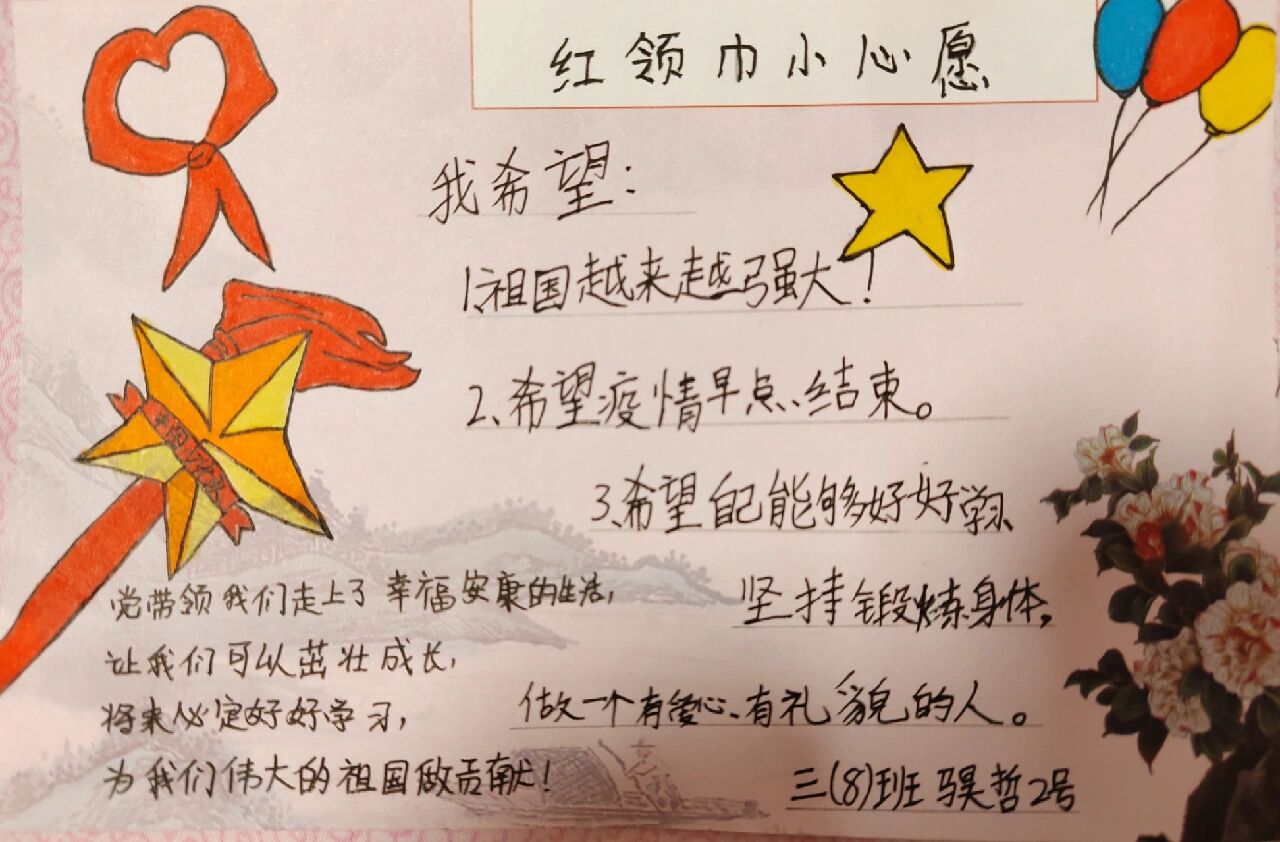 红领巾小心愿
我希望:
1、祖国越来越强大!
2、希望疫情早点、结束。
3、希望自己能够好好学习、
坚持锻炼身体,
做一个有爱心、有礼貌的人。
三(8)班 骐哲 2号
党带领我们走上了幸福安康的生活,
让我们可以茁壮成长,
将来必定好好学习,
为我们伟大的祖国做贡献!